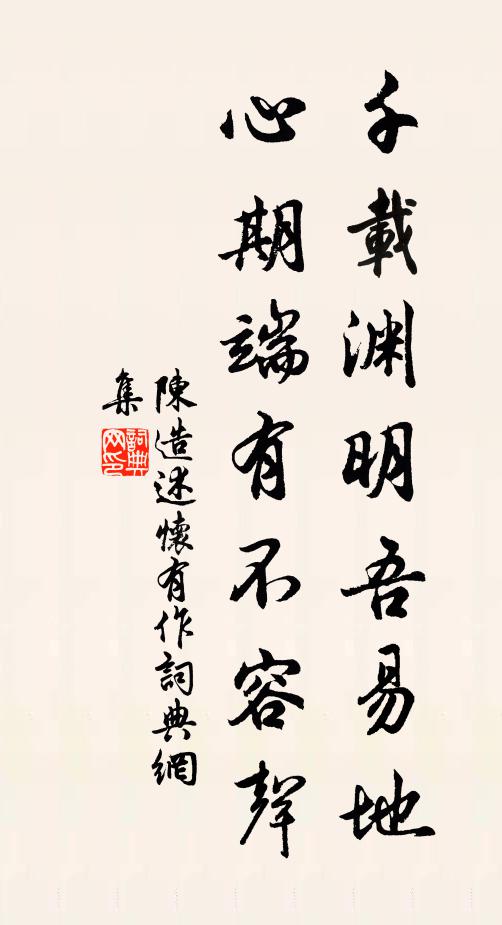 千載渊明吾易地
心期端有不容聲
陳造述懷有作詞典網
集
詞典
网印